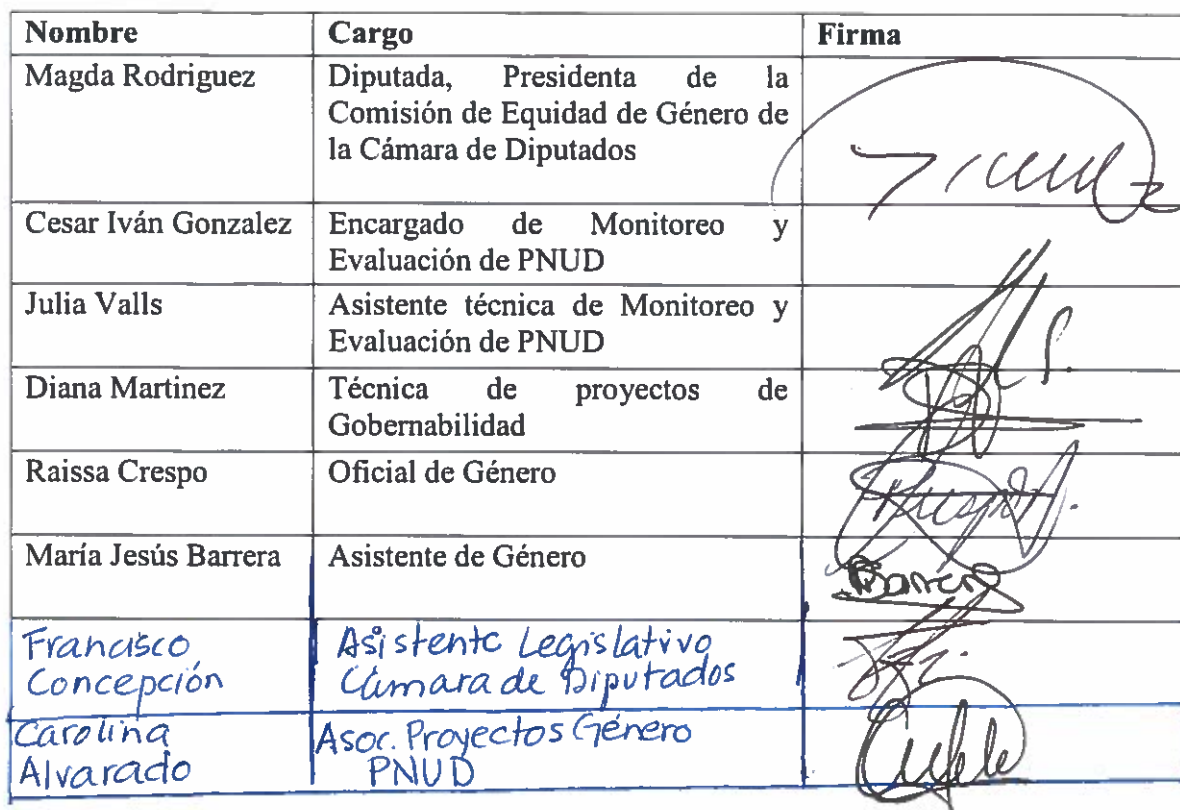 Nombre Cargo Firma
Magda Rodriguez Diputada, Presidenta de la
Comisión de Equidad de Género de
la Cámara de Diputados
Cesar Iván Gonzalez Encargado de Monitoreo y
Evaluación de PNUD
Julia Valls Asistente técnica de Monitoreo y
Evaluación de PNUD
Diana Martinez Técnica de proyectos de
Gobernabilidad
Raissa Crespo Oficial de Género
María Jesús Barrera Asistente de Género
Francisco Asistente Legislativo
Concepción Cámara de Diputados
Carolina Asoc. Proyectos Género
Alvarado PNUD